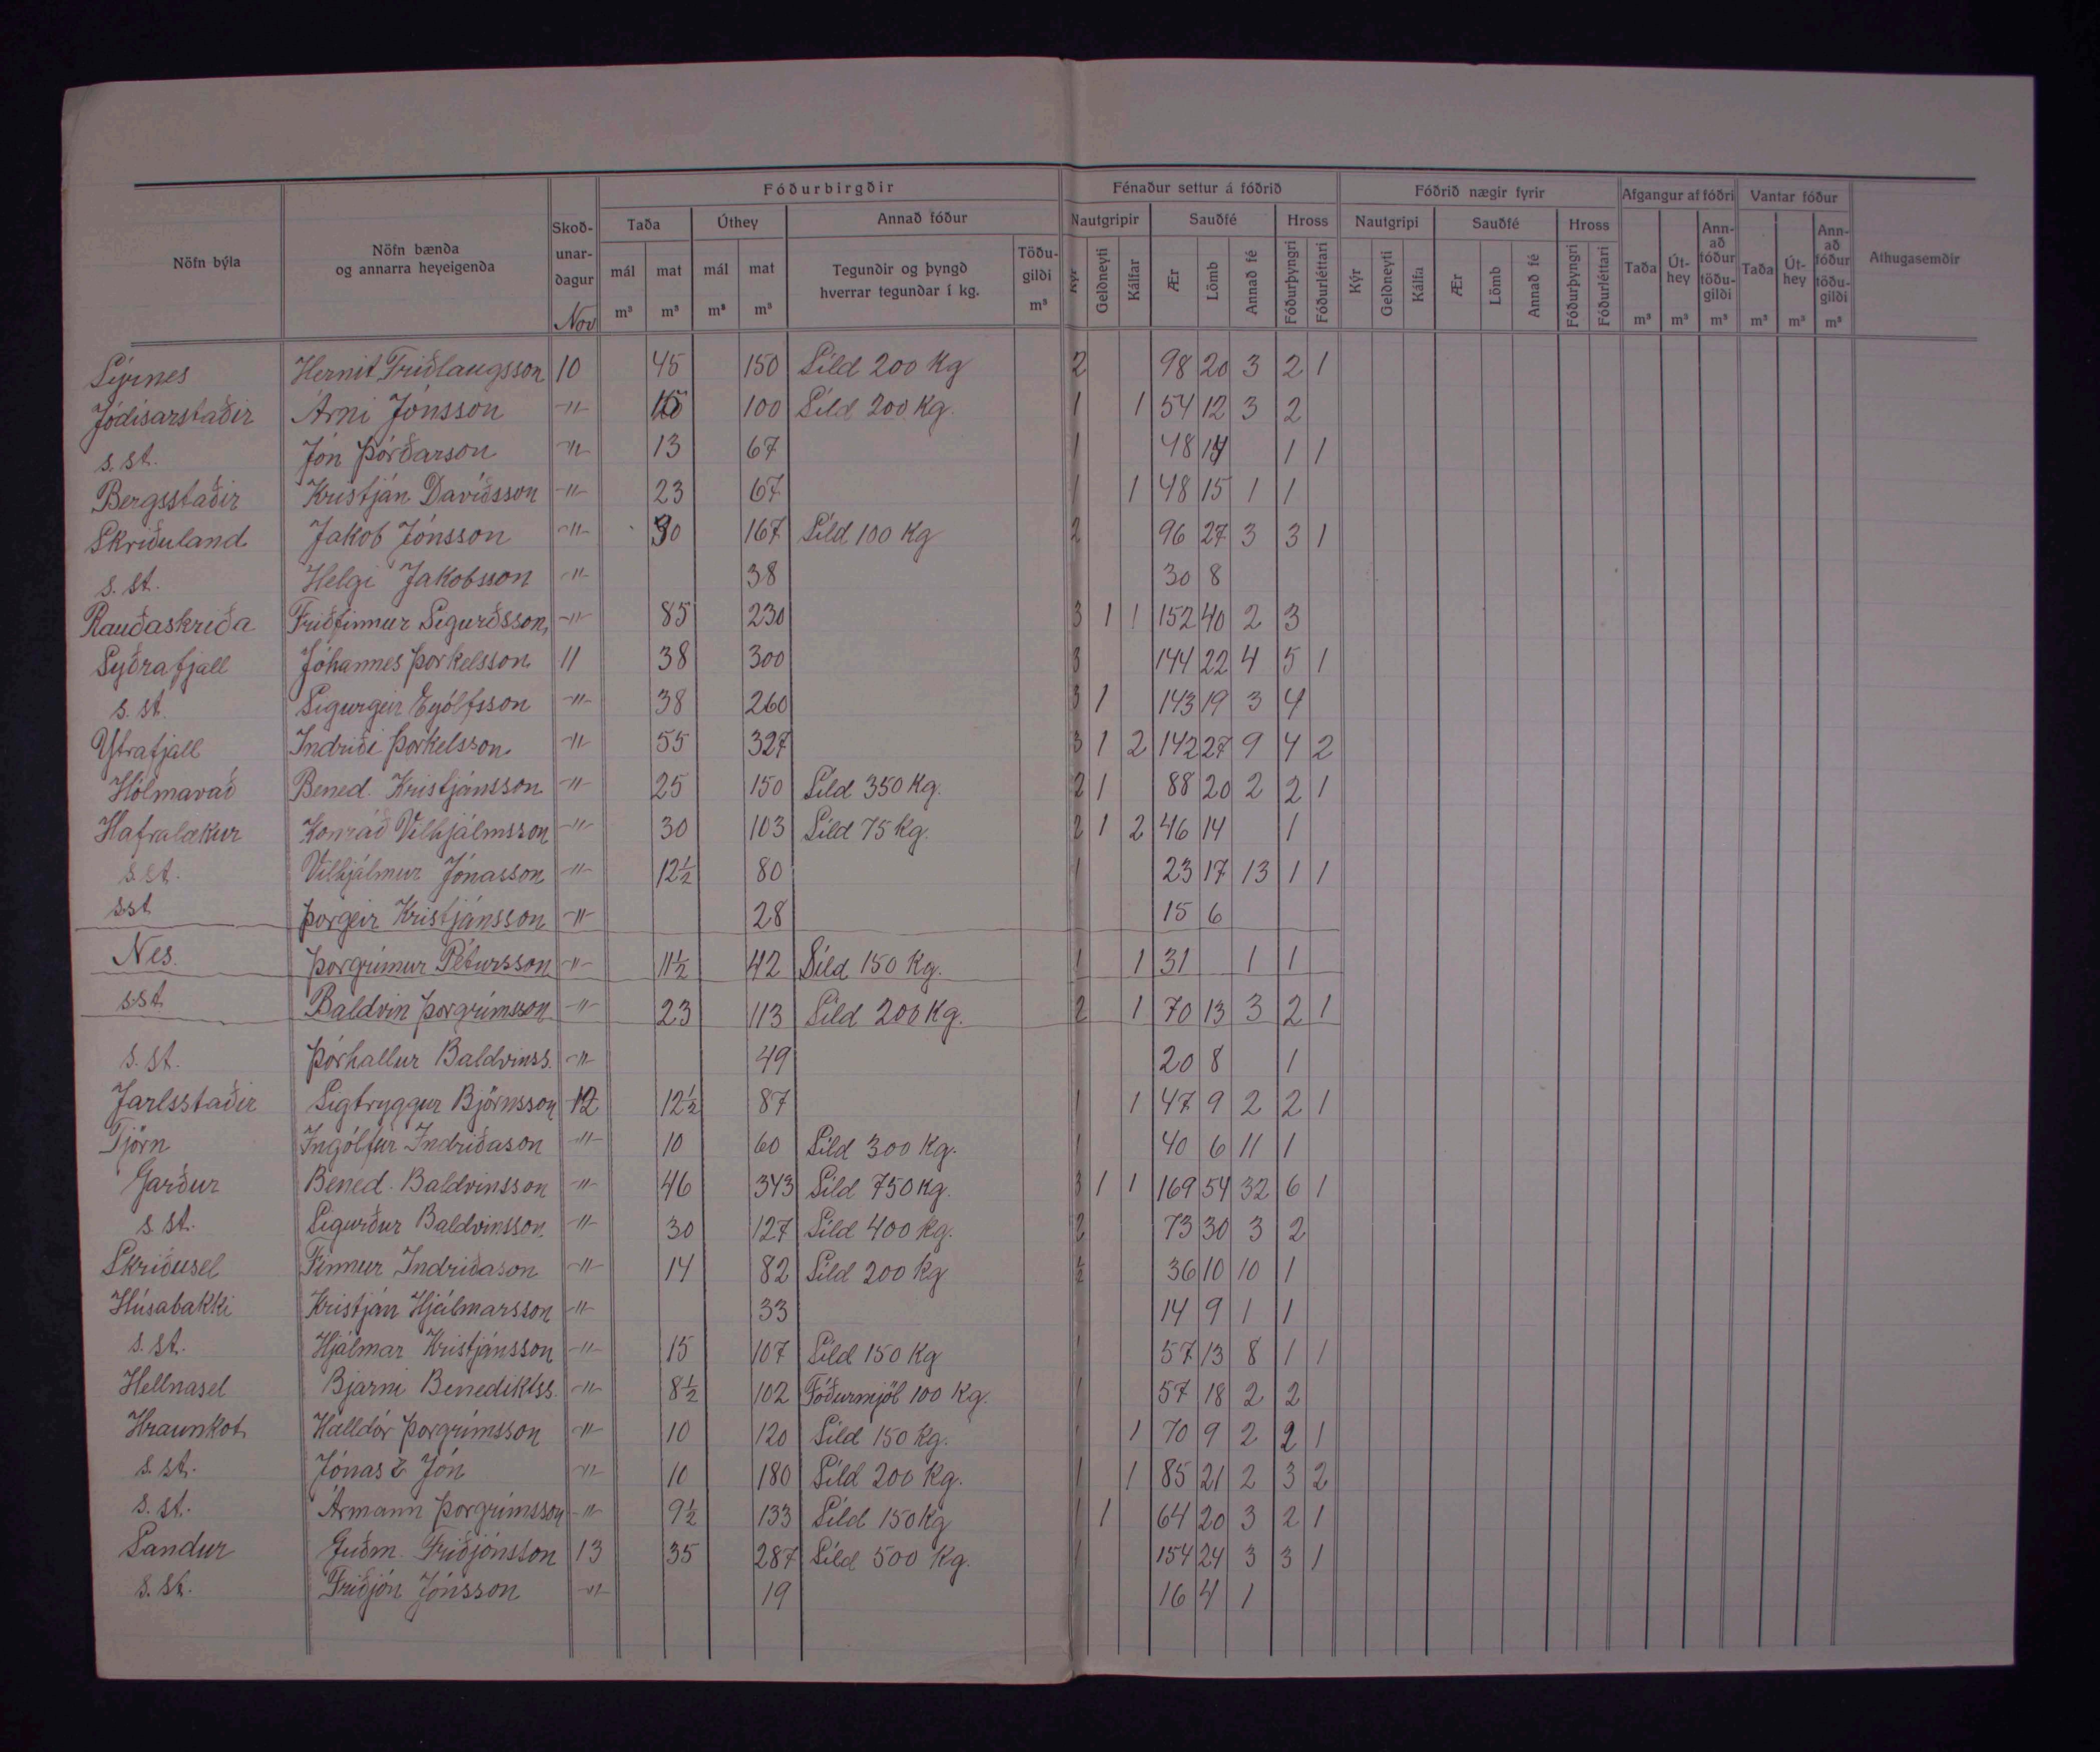 Fóðurbirgðir Fénaður settur á fóðrið Fóðrið nægir fyrir Afgangur af fóðri Vantar fóður
Nöfn býla Nöfn bænda og annarra heyeigenda Skoð-unar-dagur Taða Úthey Annað fóður Nautgripir Sauðfé Hross Nautgripi Sauðfé Hross Taða Út-hey Ann-að fóður töðu-gildi Taða Út-hey Ann-að fóður töðu-gildi Athugasemdir
mál mat mál mat Tegundir og þyngd hverrar tegundar í kg. Töðu-gildi Kýr Geldneyti Kálfar Ær Lömb Annað fé Fóðurþyngri Fóðurléttari Kýr Geldneyti Kálfa Ær Lömb Annað fé Fóðurþyngri Fóðurléttari
Nov m³ m³ m³ m³ m³ m³ m³ m³ m³ m³ m³
Sýrnes Hernit Friðlaugsson 10 45 150 Síld 200 Kg 2 98 20 3 2 1
Jódísarstaðir Árni Jónsson -"- 100 Síld 200 Kg. 1 1 54 12 3 2
s. st. Jón Þórðarson -"- 13 67 1 48 1 1
Bergsstaðir Kristján Davíðsson -"- 23 67 1 1 48 15 1 1
Skriðuland Jakob Jónsson -"- 30 167 Síld 100 Kg 2 96 27 3 3 1
s. st. Helgi Jakobsson -"- 38 30 8
Rauðaskriða Friðfinnur Sigurðsson -"- 85 230 3 1 1 152 40 2 3
Syðrafjall Jóhannes Þorkelsson 11 38 300 3 144 22 4 5 1
s. st. Sigurgeir Eyólfsson -"- 38 260 3 1 143 19 3 4
Ytrafjall Indriði Þorkelsson -"- 55 327 3 1 2 142 27 9 4 2
Hólmavað Bened. Kristjánsson -"- 25 150 Síld 350 Kg. 2 1 88 20 2 2 1
Hafralækur Konráð Vilhjálmsson -"- 30 103 Síld 75 Kg. 2 1 2 46 14 1
s. st. Vilhjálmur Jónasson -"- 12½ 80 1 23 17 13 1 1
s.st Þorgeir Kristjánsson -"- 28 15 6
Nes. Þorgrímur Pétursson -"- 11½ 42 Síld 150 Kg. 1 1 31 1 1
s.st. Baldvin Þorgrímsson -"- 23 113 Síld 200 Kg. 2 1 70 13 3 2 1
s. st. Þórhallur Baldvinss. -"- 49 20 8 1
Jarlsstaðir Sigtryggur Björnsson 12 12½ 87 1 1 47 9 2 2 1
Tjörn Ingólfur Indriðason -"- 10 60 Síld 300 Kg. 1 40 6 11 1
Garður Bened. Baldvinsson -"- 46 343 Síld 750 Kg. 3 1 1 169 54 32 6 1
s. st. Sigurður Baldvinsson -"- 30 127 Síld 400 Kg. 2 73 30 3 2
Skriðusel Finnur Indriðason -"- 14 82 Síld 200 Kg ½ 36 10 10 1
Húsabakki Kristján Hjálmarsson -"- 33 14 9 1 1
s. st. Hjálmar Kristjánsson -"- 15 107 Síld 150 Kg 1 57 13 8 1 1
Hellnasel Bjarni Benediktss. -"- 8½ 102 Fóðurmjöl 100 Kg. 1 57 18 2 2
Hraunkot Halldór Þorgrímsson -"- 10 120 Síld 150 Kg. 1 1 70 9 2 2 1
s. st. Jónas & Jón -"- 10 180 Síld 200 Kg. 1 1 85 21 2 3 2
s. st. Ármann Þorgrímsson -"- 9½ 133 Síld 150 Kg 1 1 64 20 3 2 1
Sandur Guðm. Friðjónsson 13 35 287 Síld 500 Kg. 1 154 24 3 3 1
s. st. Friðjón Jónsson -"- 19 16 4 1